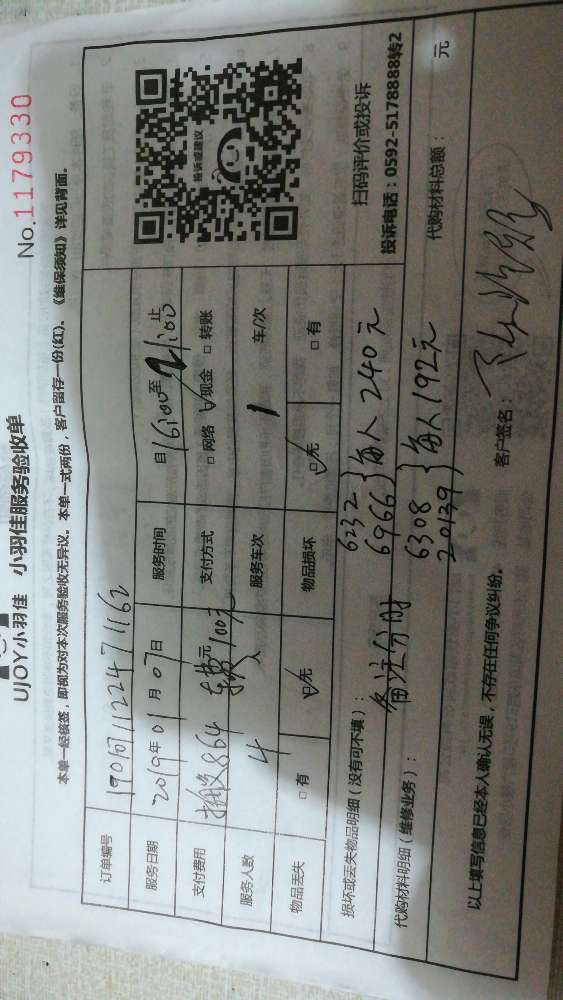 UJOY小羽佳 小羽佳服务验收单
No.1179330
本单一经核签,即视为对本次服务验收无异议。本单一式两份,客户留存一份(红)、《维保须知》详见背面。
订单编号 1901071122471162
服务日期 2019年01月07日 服务时间 自16:00至21:00止
支付费用 搬864 车费100元 支付方式 □网络 ☑现金 □转账
服务人数 4人 服务车次 1 车/次
物品丢失 □有 ☑无 物品损坏 ☑无 □有
投诉或建议
扫码评价或投诉
投诉电话:0592-5178888转2
损坏或丢失物品明细(没有可不填):
6232
6966 }每人240元
代购材料明细(维修业务):
备注分时
6308
20139 }每人192元
代购材料总额: 元
以上填写信息已经本人确认无误,不存在任何争议纠纷。
客户签名: